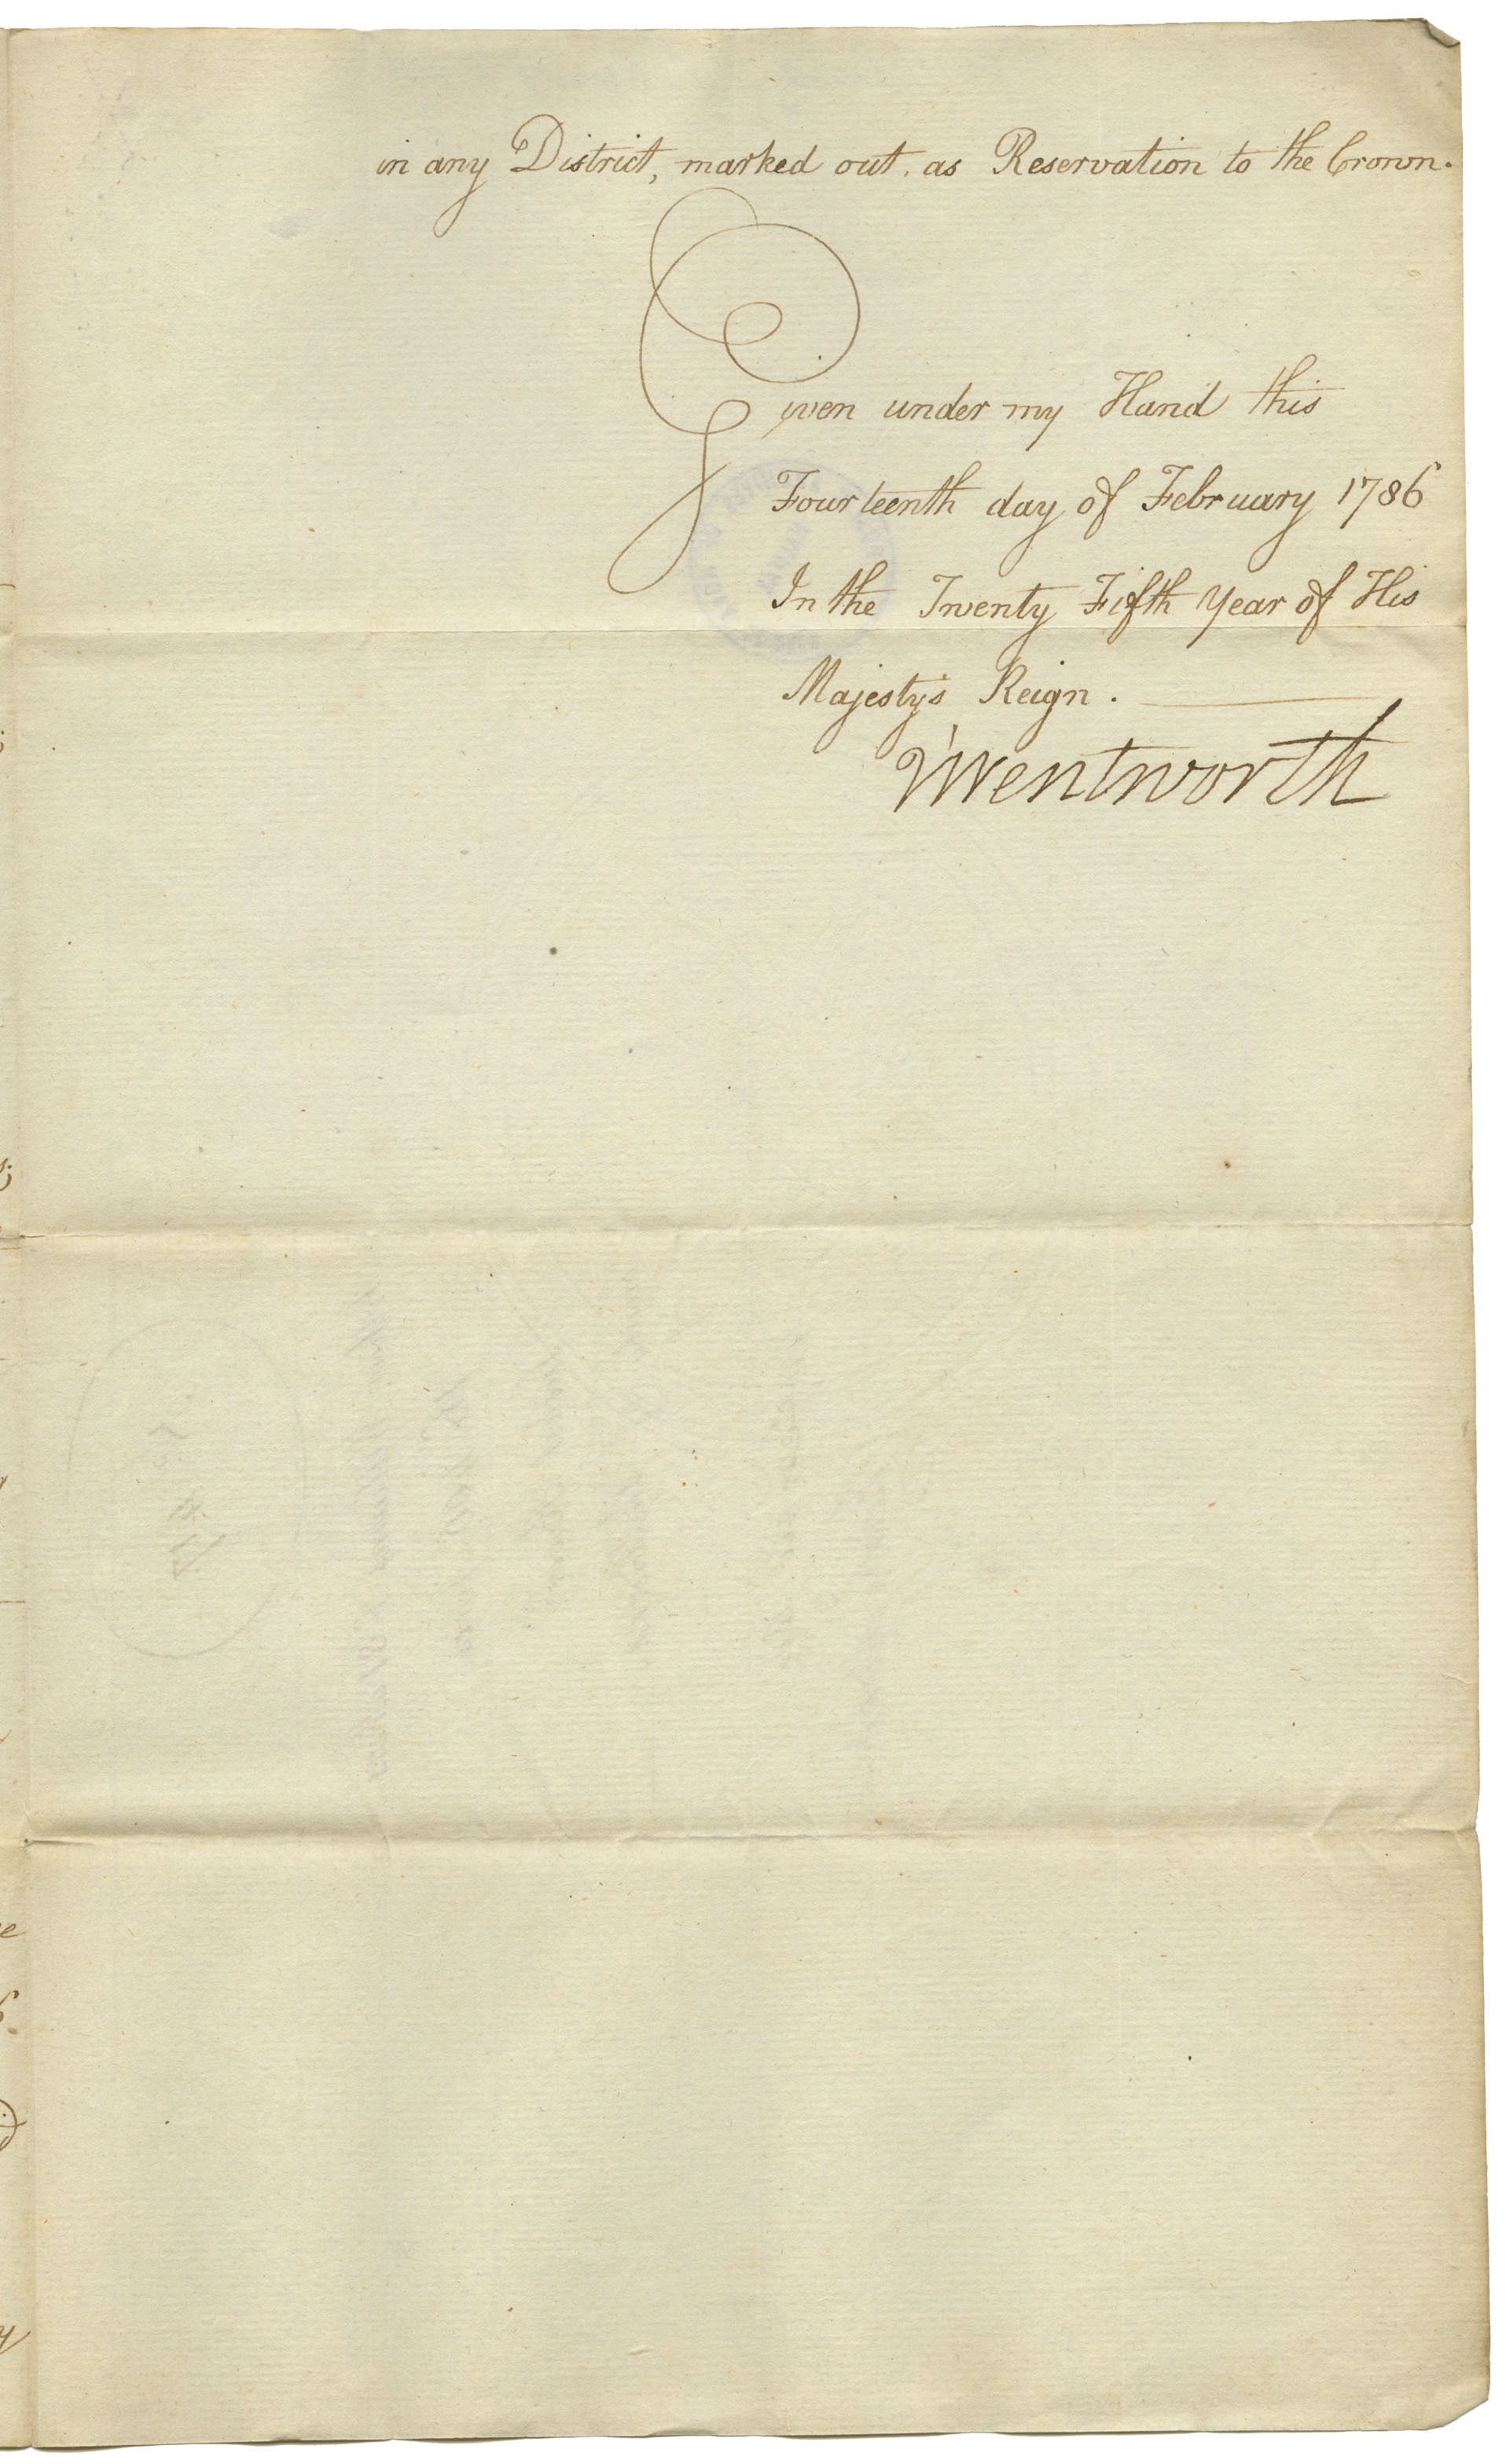 in any District, marked out, as Reservation to the Crown.
Given under my Hand this
Fourteenth day of February 1786
In the Twenty Fifth Year of His
Majesty's Reign.
Wentworth